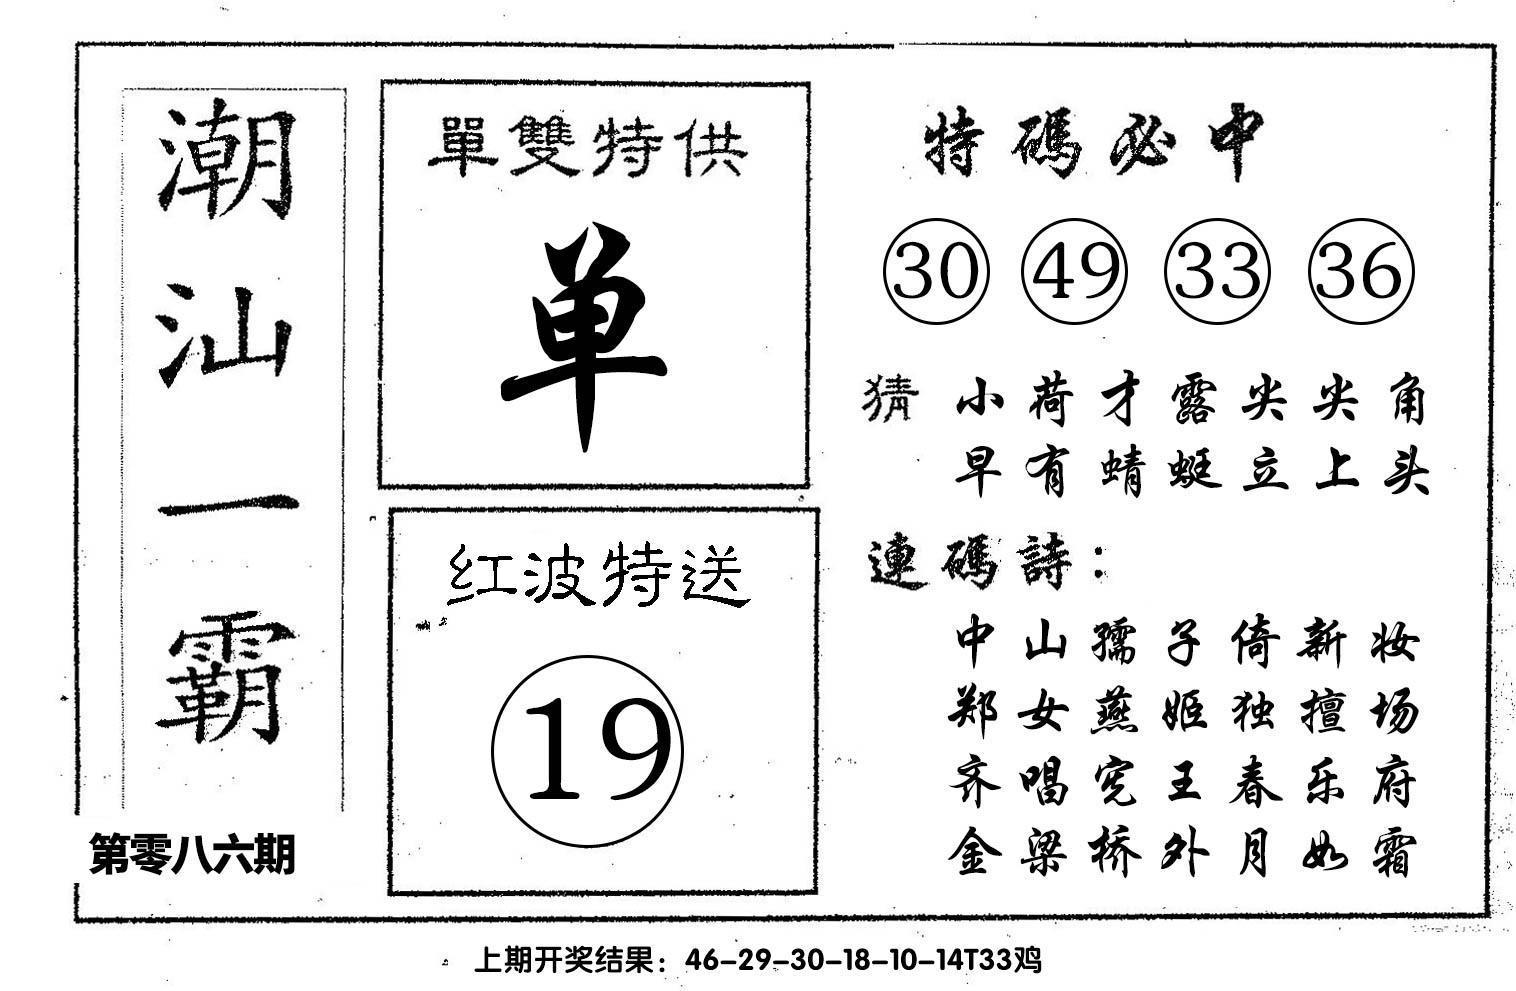 潮汕一霸
第零八六期
單雙特供
单
红波特送
19
特碼必中
30 49 33 36
猜 小荷才露尖尖角
早有蜻蜓立上头
連碼詩：
中山孺子倚新妆
郑女燕姬独擅场
齐唱宪王春乐府
金梁桥外月如霜
上期开奖结果：46-29-30-18-10-14T33鸡